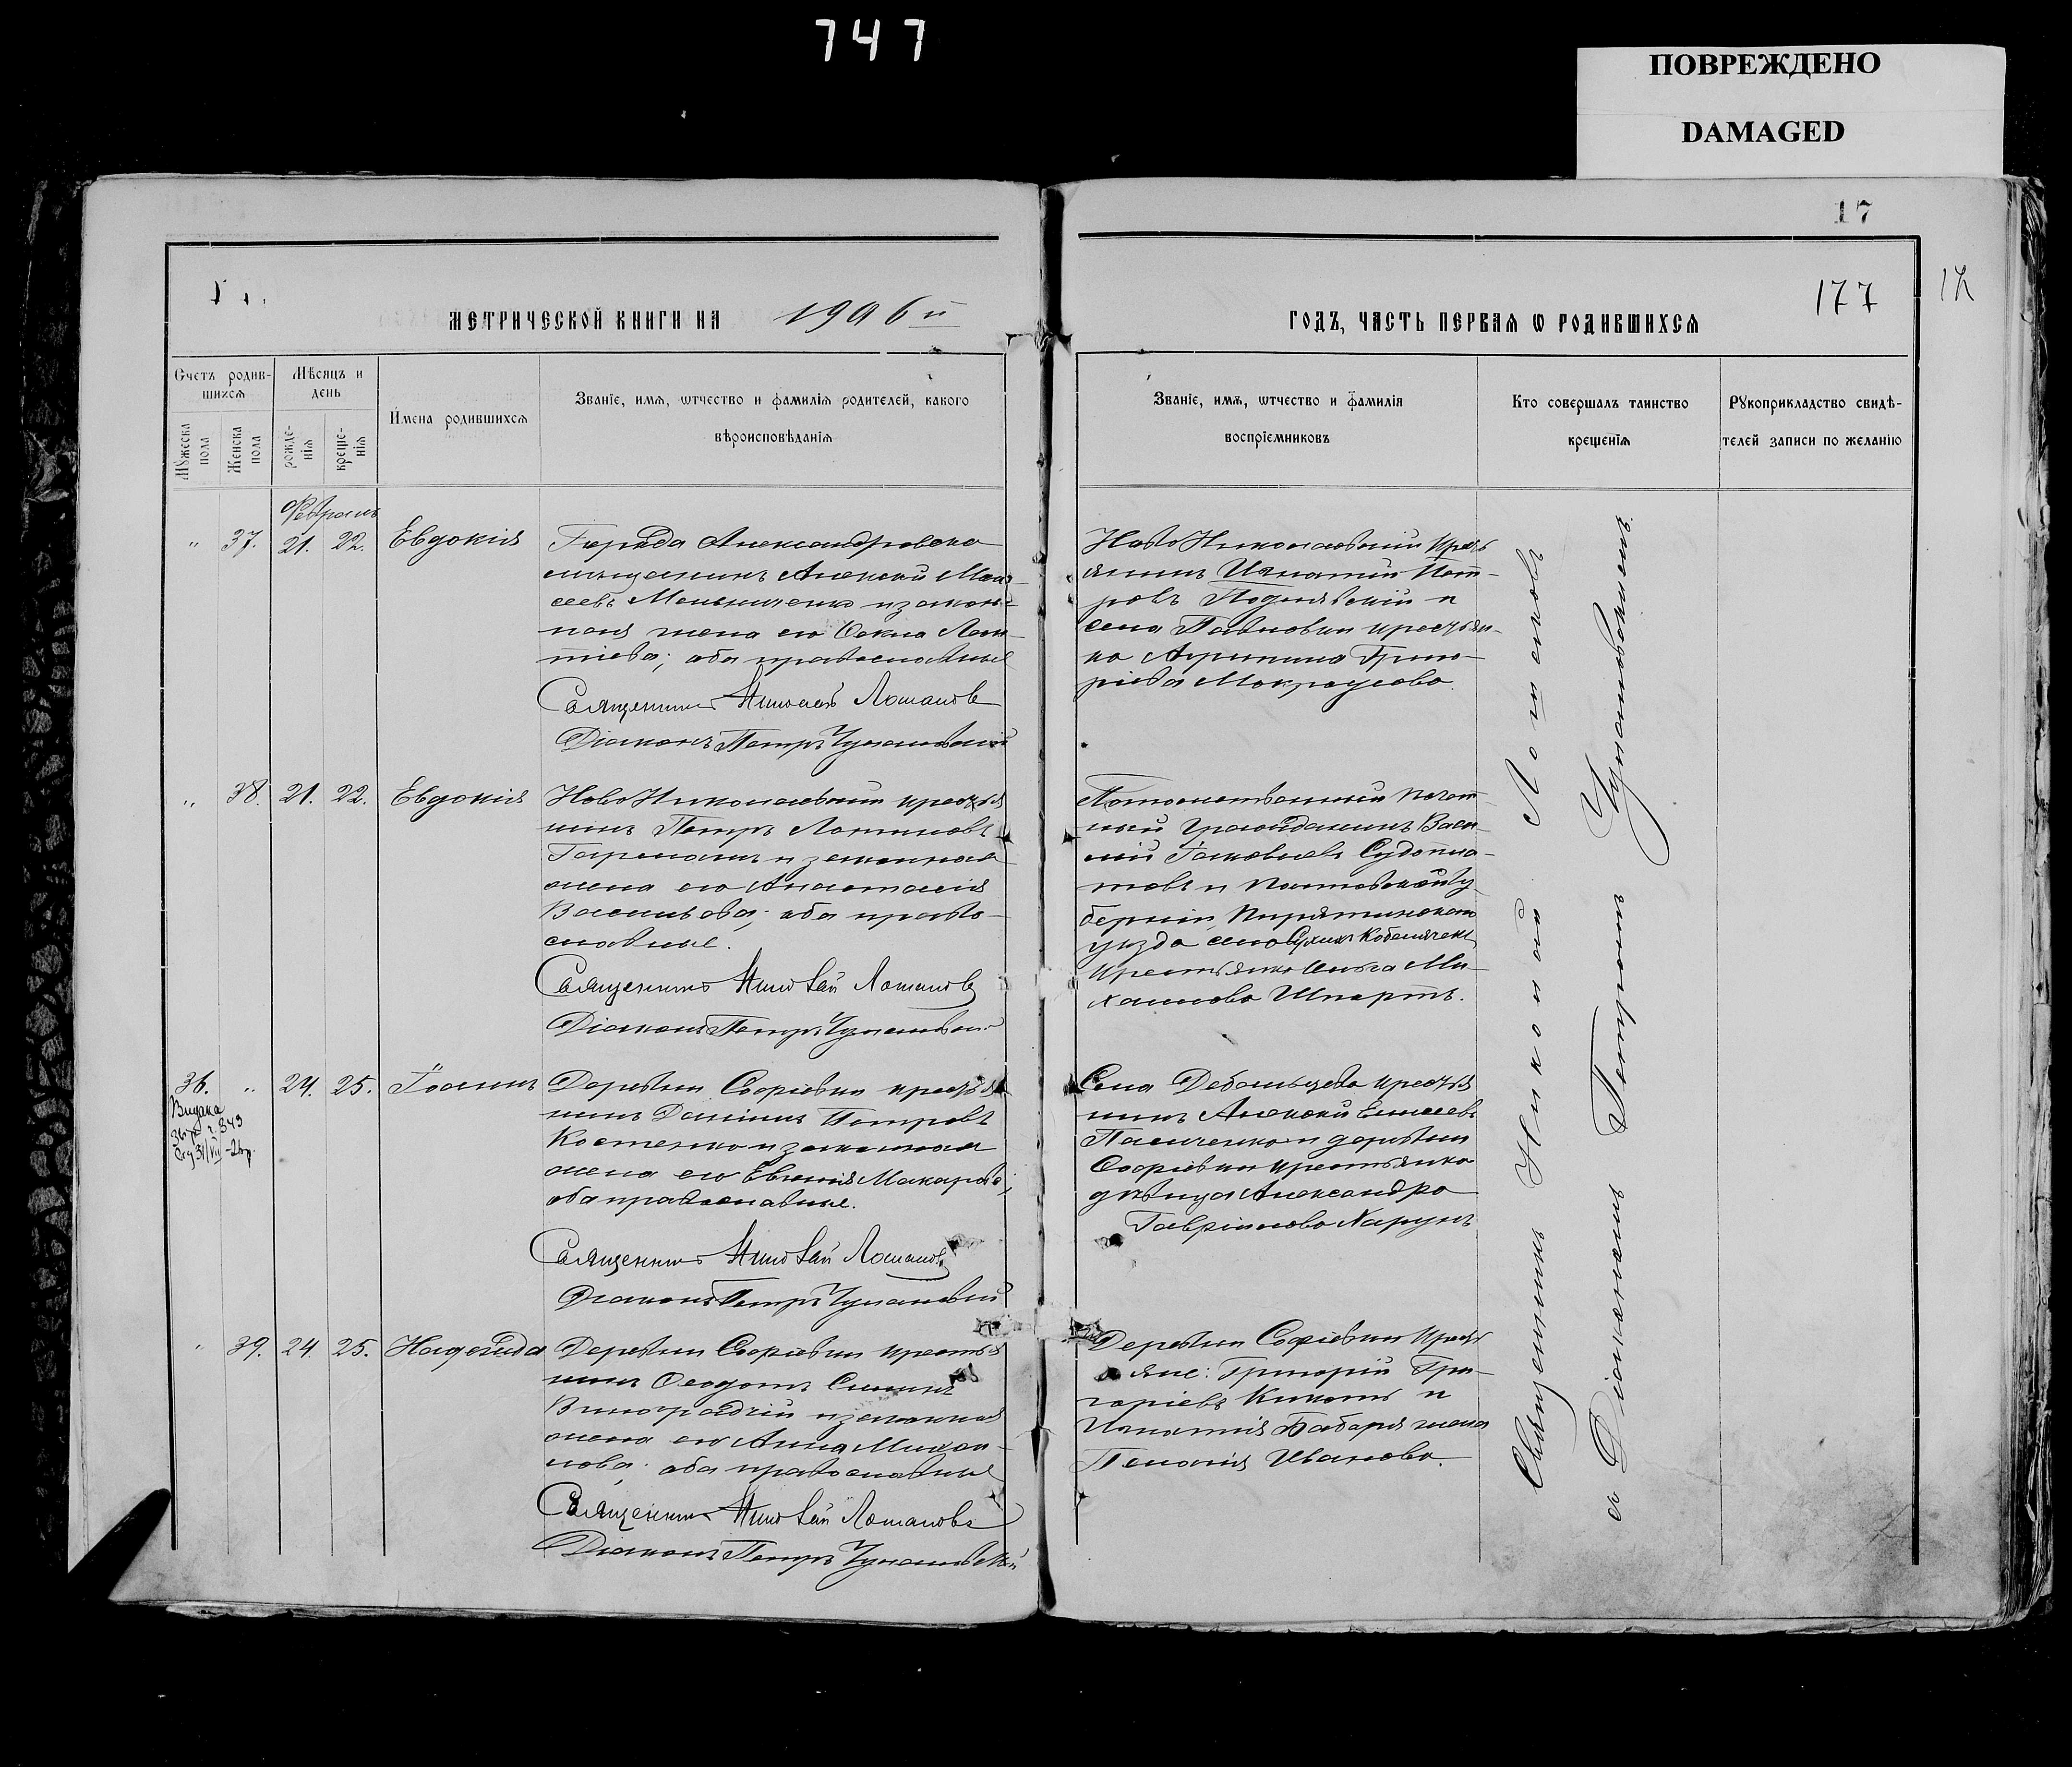 747
ПОВРЕЖДЕНО
DAMAGED
17
177
МЕТРИЧЕСКОЙ КНИГИ НА 1906й
ГОДЪ, ЧАСТЬ ПЕРВАЯ Ѡ РОДИВШИХСЯ
Счетъ родив-
шихся
Мꙋжеска пола
Женска пола
Мѣсяцъ и
день
рожде-
нїя
креще-
нїя
Имена родившихся
Званїе, имя, ѡтчество и фамилїя родителей, какого
вѣроисповѣданїя
Званїе, имя, ѡтчество и фамилїя
воспрїемниковъ
Кто совершалъ таинство
крещенїя
Рꙋкоприкладство свидѣ-
телей записи по желанїю
Февраль
" 37. 21. 22. Евдокія
Города Александровска
мѣщанинъ Алексѣй Мои-
сеевъ Меньшенко и закон-
ная жена его Ѳекла Леон-
тіева; оба православные
Священникъ Николай Лошаковъ
Діаконъ Петръ Чулановскій
НовоНиколаевскій кресть
янинъ Игнатій Пет-
ровъ Поднявскій и
села Павловки крестьян-
ка Агрипина Григо-
ріева Мокроусова.
" 38. 21. 22. Евдокія
НовоНиколаевскій крестья
нинъ Петръ Логиновъ
и законная
жена его Анастасія
Васильева; оба право-
славные.
Священникъ Николай Лошаковъ
Діаконъ Петръ Чулановскій
Потомственный почет-
ный гражданинъ Васи-
лій Іаковлевъ Судопла-
товъ и Полтавской гу-
берніи, Пирятинскаго
уѣзда села Кобелячекъ
крестьянка Ольга Ми-
хаилова Шпортъ.
36. " 24. 25. Іоаннъ
Деревни Софіевки крестья
нинъ Даніилъ Петровъ
Костенко и законная
жена его Евгенія Макарова;
оба православные.
Священникъ Николай Лошаковъ
Діаконъ Петръ Чулановскій
Села Дебальцева крестья
нинъ Алексѣй Елисеевъ
Пасиченко и деревни
Софіевки крестьянка
дѣвица Александра
Гавріилова Харунъ
" 39. 24. 25. Надежда
Деревни Софіевки крестья
нинъ Ѳеодотъ
Виноградній и законная
жена его Анна Михаи-
лова; оба православные
Священникъ Николай Лошаковъ
Діаконъ Петръ Чулановскій
Деревни Софіевки кресть
яне: Григорій Гри-
горіевъ Кикоть и
Игнатія Бабаря жена
Пелагія Иванова.
Священникъ Николай Лошаковъ
съ Діакономъ Петромъ Чулановскимъ